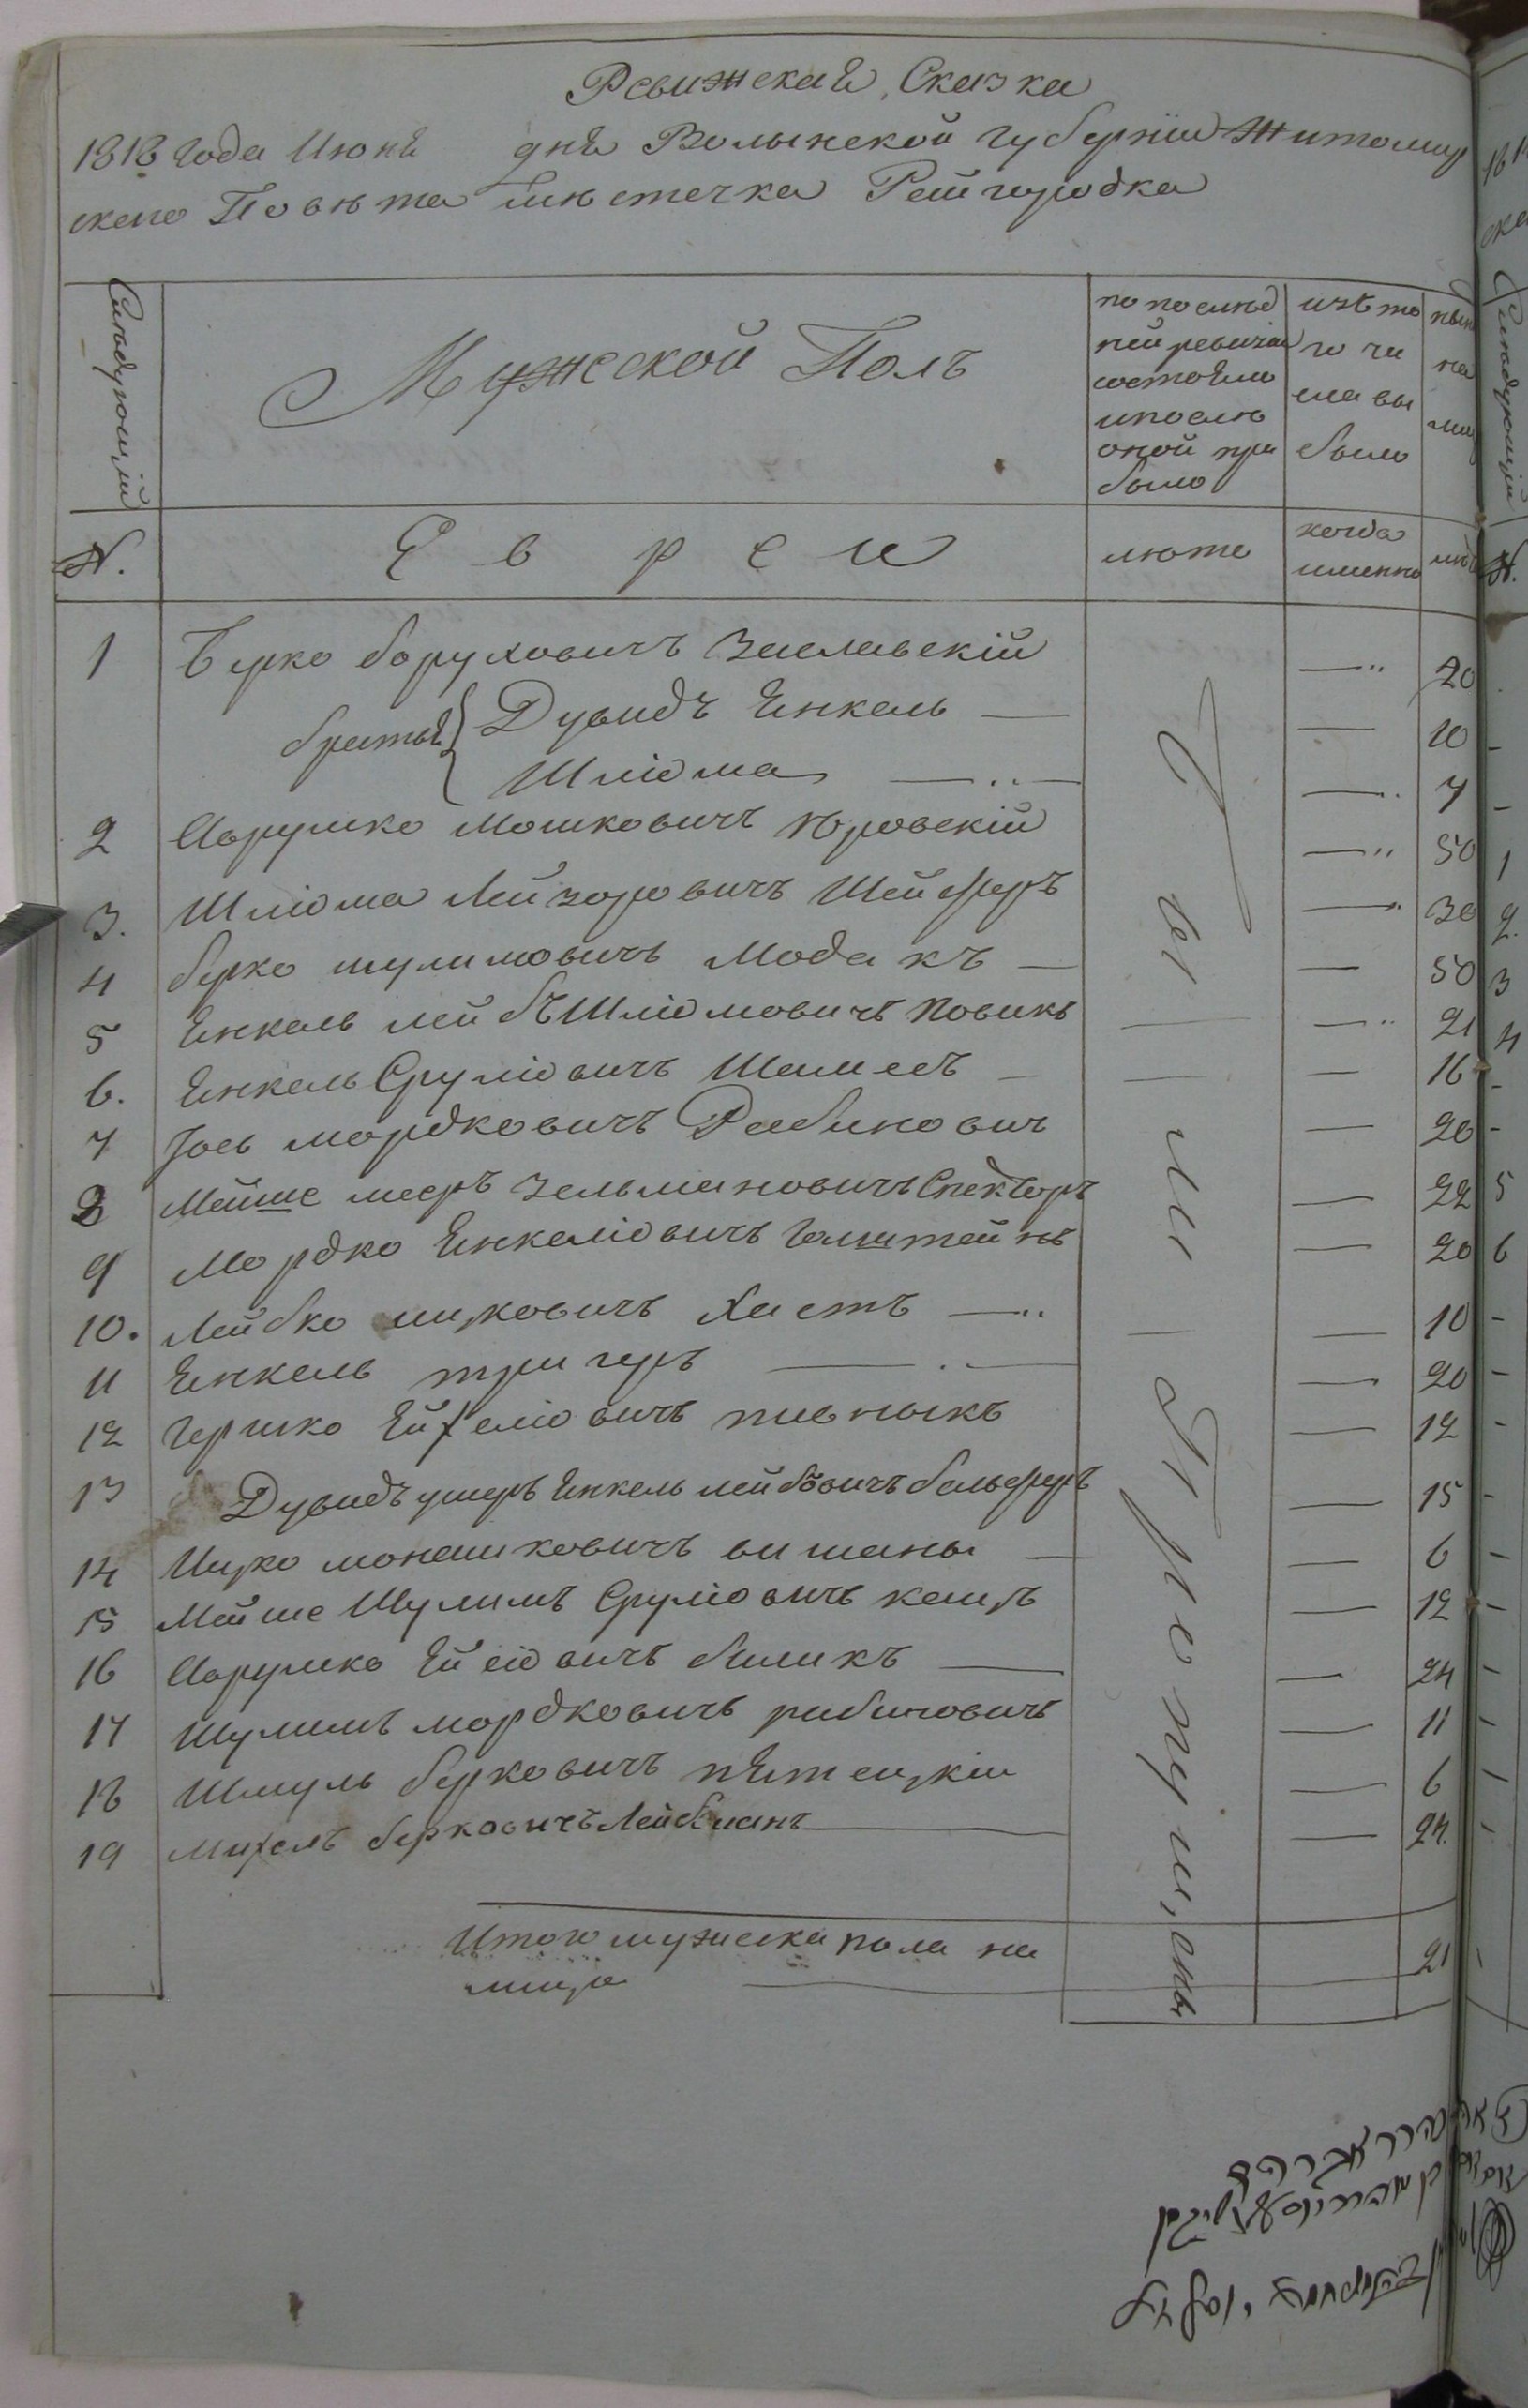 Ревижская Сказка
1818 года Июня дня Волынской губернiи Житомир
скаго Повѣта мѣстечка Райгородка
Слѣдующiй
Мужской Полъ
по послѣд
ней ревизiи
состояло
и послѣ
оной при
было
изъ то
го чи
сла вы
было
на
№.
Евреи
лѣта
когда
именно
1 Берко боруховичъ Заславскiй 20
братья Дувидъ Янкель 10
Шлiома 7
2 Аврумко Мошковичъ Юровскiй 50
3. Шлiома Лейзоровичъ Шейферъ 30
4 берко шулимовичъ Модакъ 50
5 Янкель лейбъ Шлiомовичъ Новикъ 21
6. Янкель Срулiовичъ Шамесъ 16
7 Iось мордковичъ Рабиновичъ 20
8 Мейше мееръ зельмановичъ Спекторъ 22
9 Мордко Янкелiовичъ Голштейнъ 20
10. Лейбко ицковичъ Хаетъ 10
11 Янкель тригеръ 20
12 Гершко Ейхелiовичъ пивныкъ 12
13 Дувидъ ушеръ Янкель лейбовичъ бельферъ 15
14 Ицко монашковичъ 6
15 Мейше Шулимъ Срулiовичъ кацъ 12
16 Аврумко Ейсiовичъ биликъ 24
17 Шулимъ мордковичъ рабиновичъ 11
18 Шмуль берковичъ пятецкiй 6
19 Михель берковичъ Лейбманъ 24.
Итого мужеска пола на
лицо 21